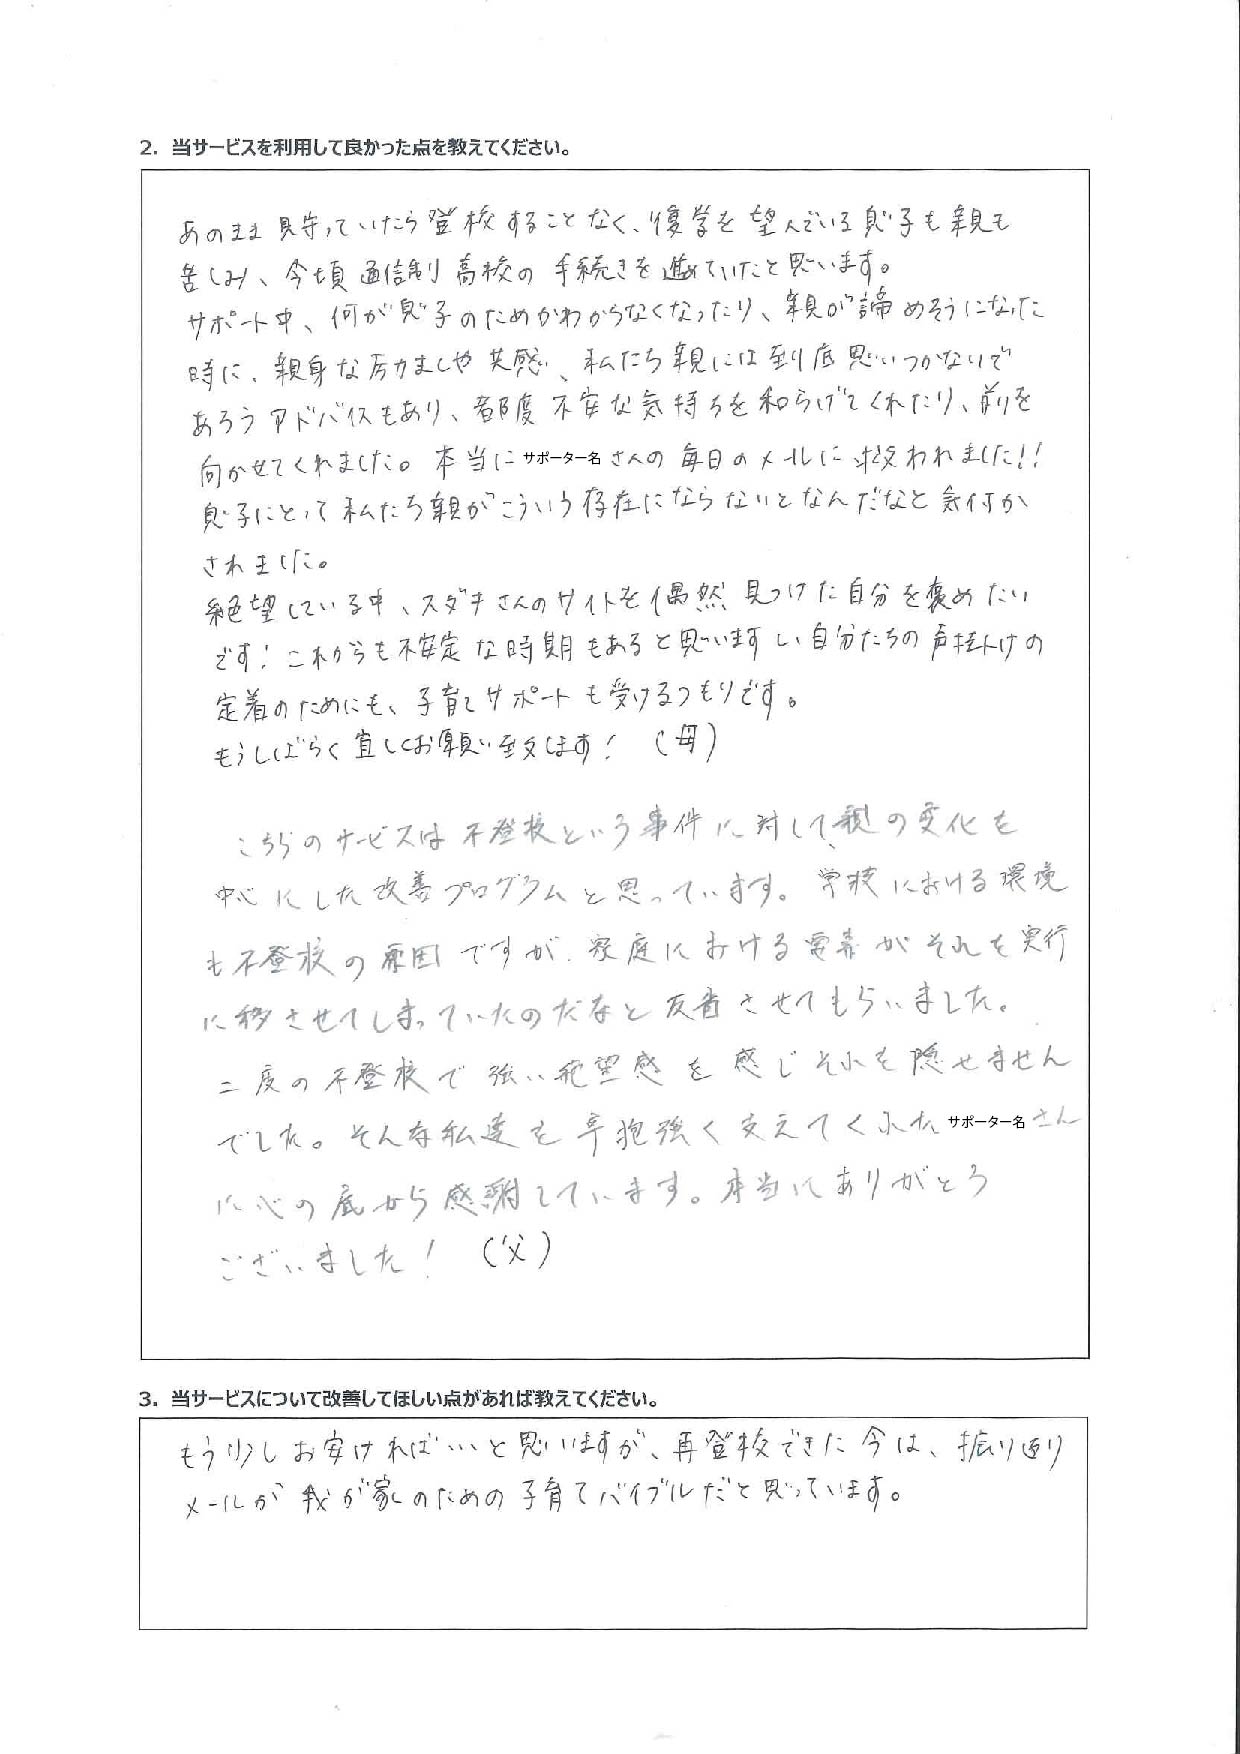 2. 当サービスを利用して良かった点を教えてください。
あのまま見守っていたら登校することなく、復学を望んでいる息子も親も
苦しみ、今頃通信制高校の手続きを進めていたと思います。
サポート中、何が息子のためかわからなくなったり、親が諦めそうになった
時に、親身な励ましや共感、私たち親には到底思いつかないで
あろうアドバイスもあり、都度不安な気持ちを和らげてくれたり、前を
向かせてくれました。本当にサポーター名さんの毎日のメールに救われました!!
息子にとって私たち親がこういう存在にならないとなんだなと気付か
されました。
絶望している中、スダチさんのサイトを偶然見つけた自分を褒めたい
です!これからも不安定な時期もあると思いますし自分たちの声掛けの
定着のためにも、子育てサポートも受けるつもりです。
もうしばらく宜しくお願い致します!(母)
こちらのサービスは不登校という事件に対して、親の変化を
中心にした改善プログラムと思っています。学校における環境
も不登校の原因ですが、家庭における要素がそれを実行
に移させてしまっていたのだなと反省させてもらいました。
二度の不登校で強い絶望感を感じそれを隠せません
でした。そんな私達を辛抱強く支えてくれたサポーター名さん
に心の底から感謝しています。本当にありがとう
ございました!(父)
3. 当サービスについて改善してほしい点があれば教えてください。
もう少しお安ければ…と思いますが、再登校できた今は、振り返り
メールが我が家のための子育てバイブルだと思っています。